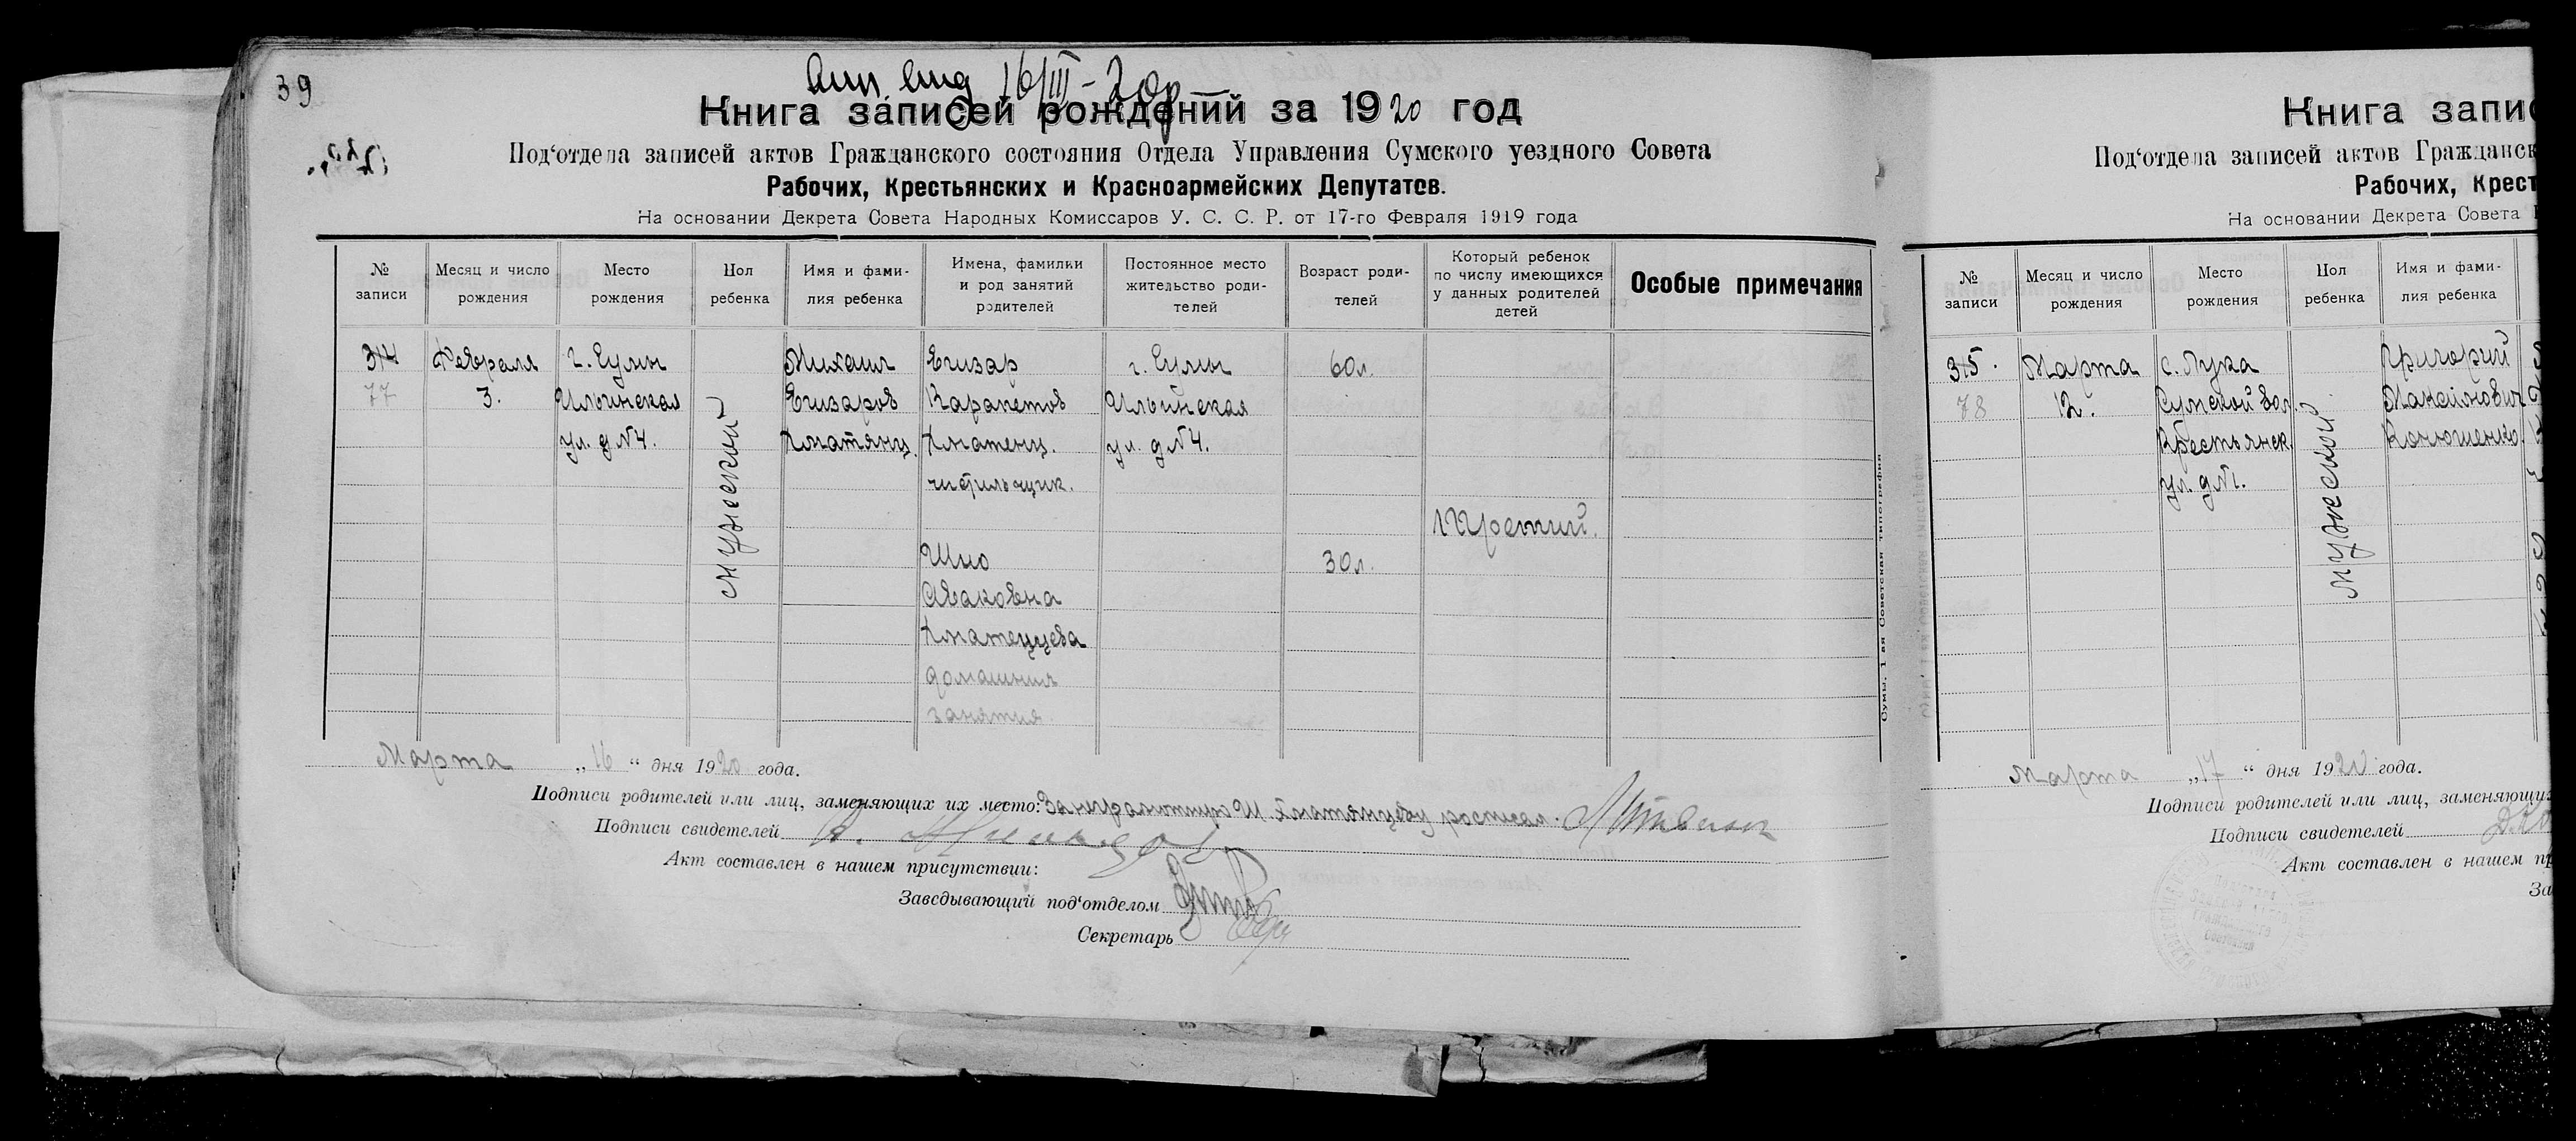 39
16/III-20г
Книга записей рождений за 1920 год
Под‘отдела записей актов Гражданского состояния Отдела Управления Сумского уездного Совета
Рабочих, Крестьянских и Красноармейских Депутатов.
На основании Декрета Совета Народных Комиссаров У. С. С. Р. от 17-го Февраля 1919 года
№ записи
Месяц и число рождения
Место рождения
Пол ребенка
Имя и фамилия ребенка
Имена, фамилии и род занятий родителей
Постоянное место жительство родителей
Возраст родителей
Который ребенок по числу имеющихся у данных родителей детей
Особые примечания
314
77
Февраля
3.
г. Сумы
Ильинская
ул. д. №4.
мужеский
Михаил
Егизаров
Егизар
Карапетов
чистильщик.
г. Сумы
Ильинская
ул. д №4.
60 л.
Третий.
Шно
Аваковна
домашния
занятия
30 л.
Марта „16“ дня 1920 года.
Подписи родителей или лиц, заменяющих их место: За неграмотную Ш.
Подписи свидетелей
Акт составлен в нашем присутствии:
Заведывающий под‘отделом
Секретарь
Сумы, 1-ая Советская типография
Книга запис
Под‘отдела записей актов Гражданск
Рабочих, Крест
На основании Декрета Совета
№ записи
Месяц и число рождения
Место рождения
Пол ребенка
Имя и фамилия ребенка
315.
78
Марта
12.
с. Лука
Сумской вол.
Крестьянск.
ул. д №1.
мужеский
Григорий
Максимович
Конюшенко
Марта „17“ дня 1920 года.
Подписи родителей или лиц, заменяющих
Подписи свидетелей
Акт составлен в нашем пр
За